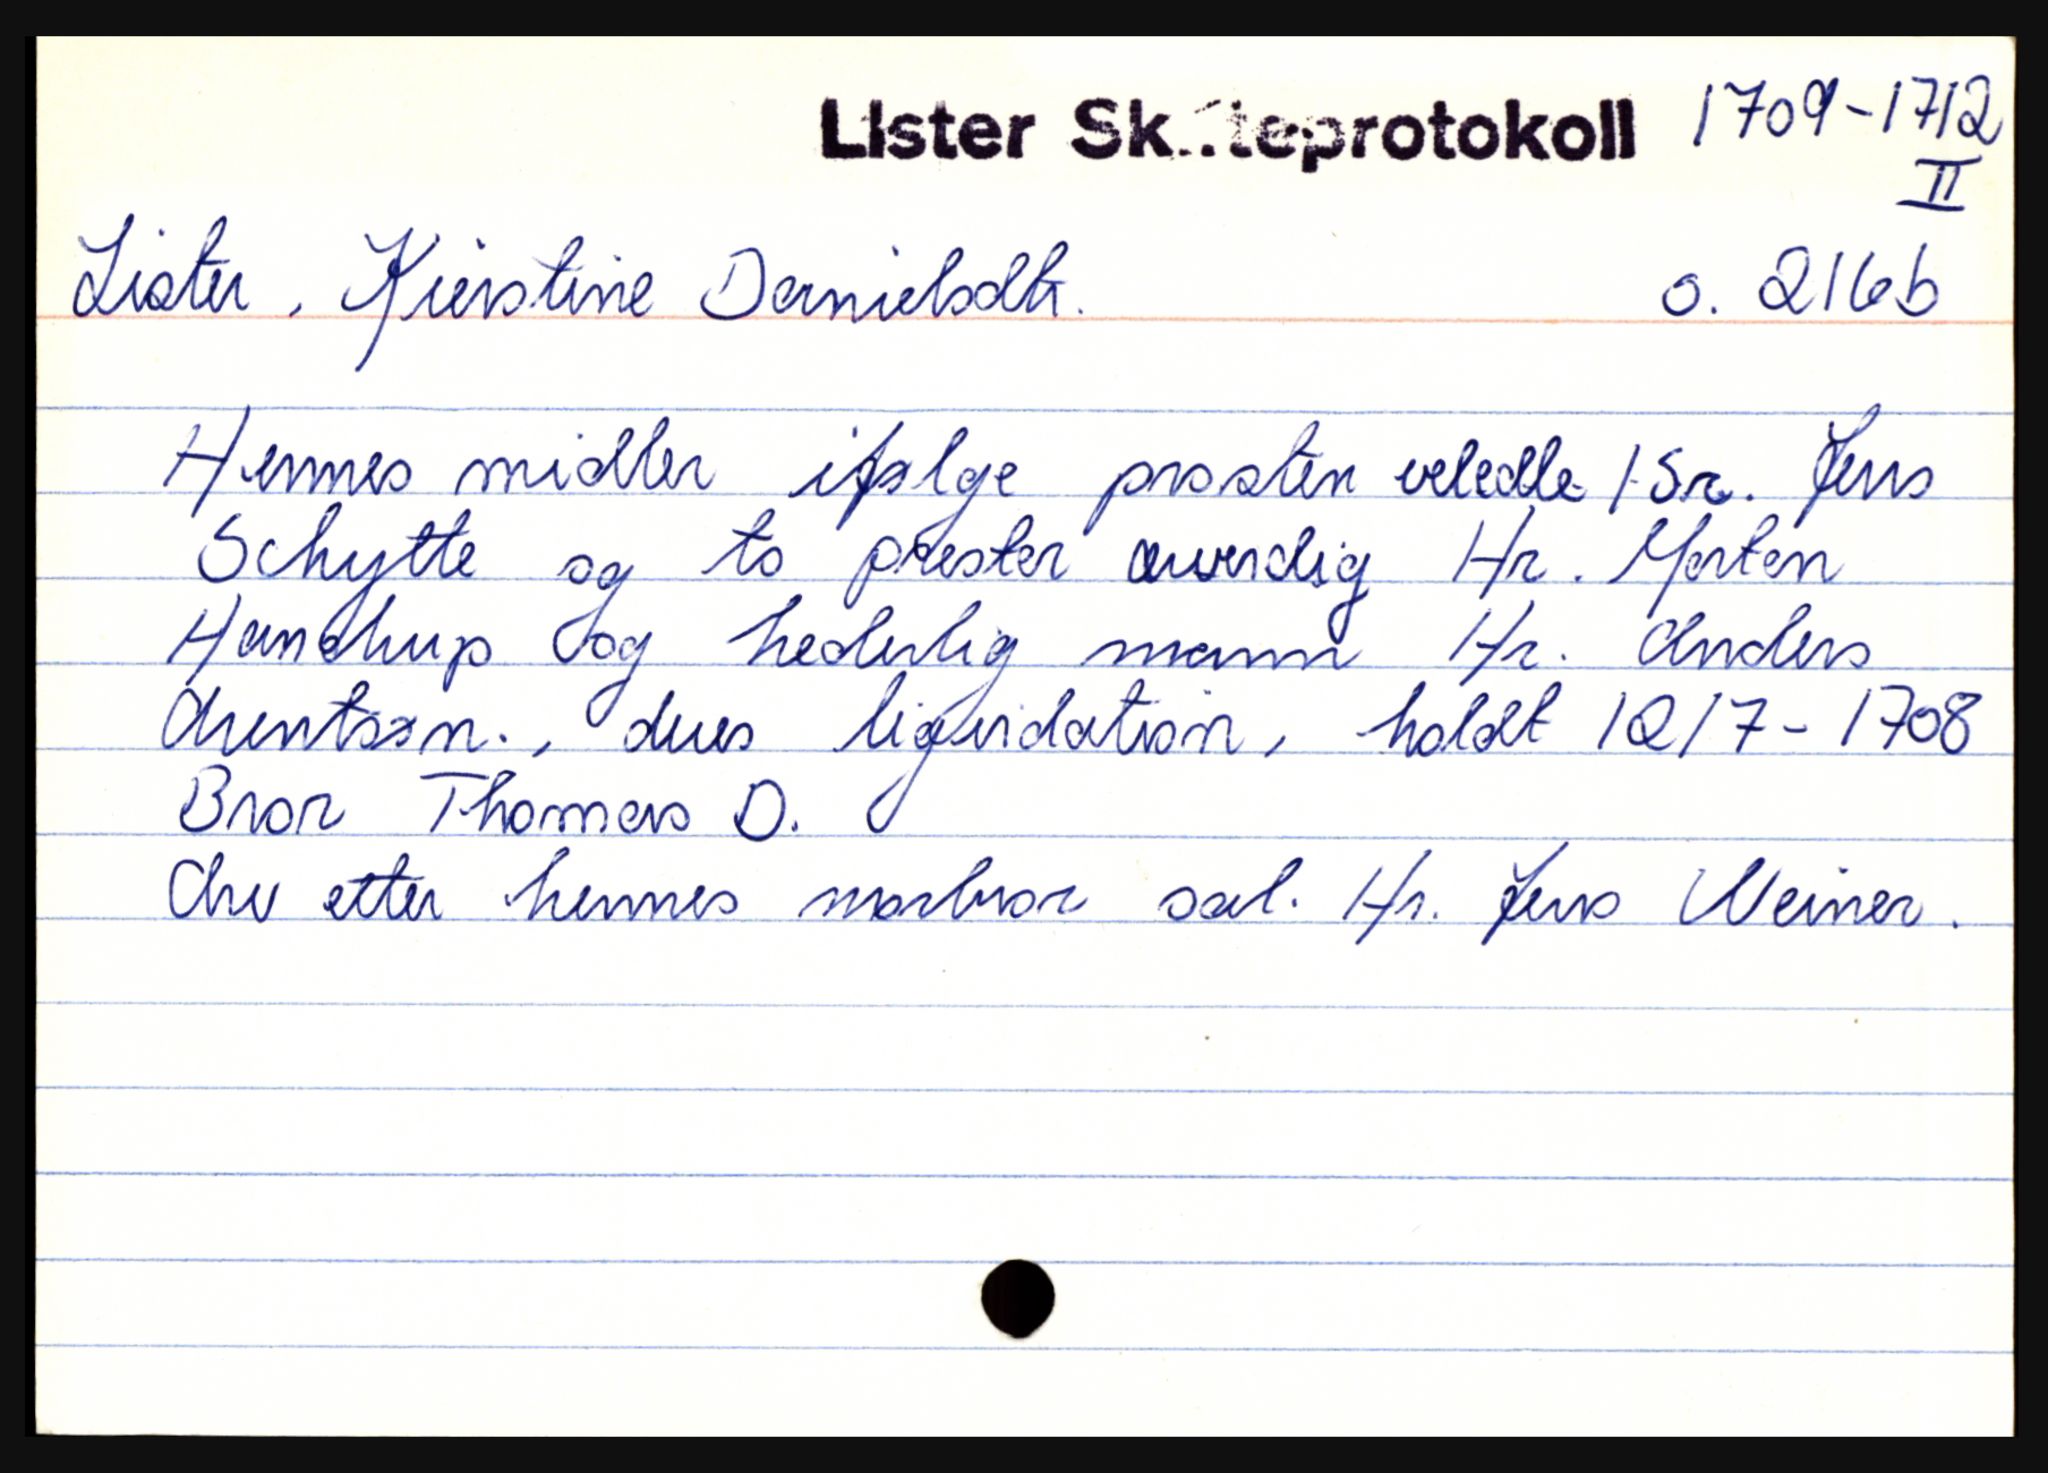 Lister Skifteprotokoll 1709-1712
II
Lister, Kierstine Danielsdtr. o. 216b
Hennes midler ifølge prosten veledle Sr. Jens
Schytte og to prester ærverdig Hr. Morten
Handrup og hederlig mann Hr. Anders
Arentssøn., dres liqvidation, holdt 12/7-1708
Bror Thomas D.
Arv etter hennes morbror sal. Hr. Jens Weiner.